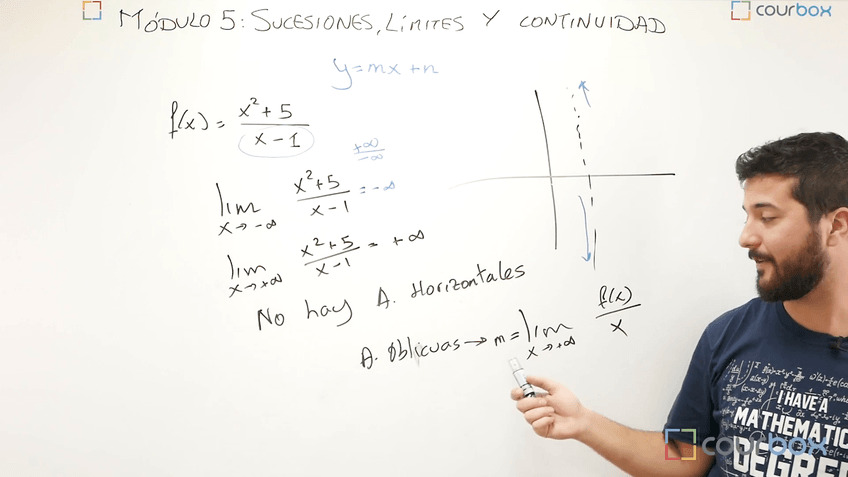 MÓDULO 5: SUCESIONES, LÍMITES Y CONTINUIDAD
courbox
y=mx+n
f(x) = (x²+5)/(x-1)
+∞/-∞
lim x→-∞ (x²+5)/(x-1) = -∞
lim x→+∞ (x²+5)/(x-1) = +∞
No hay A. Horizontales
A. Oblicuas → m = lim x→+∞ f(x)/x
I HAVE A
MATHEMATIC
DEGREE
courbox